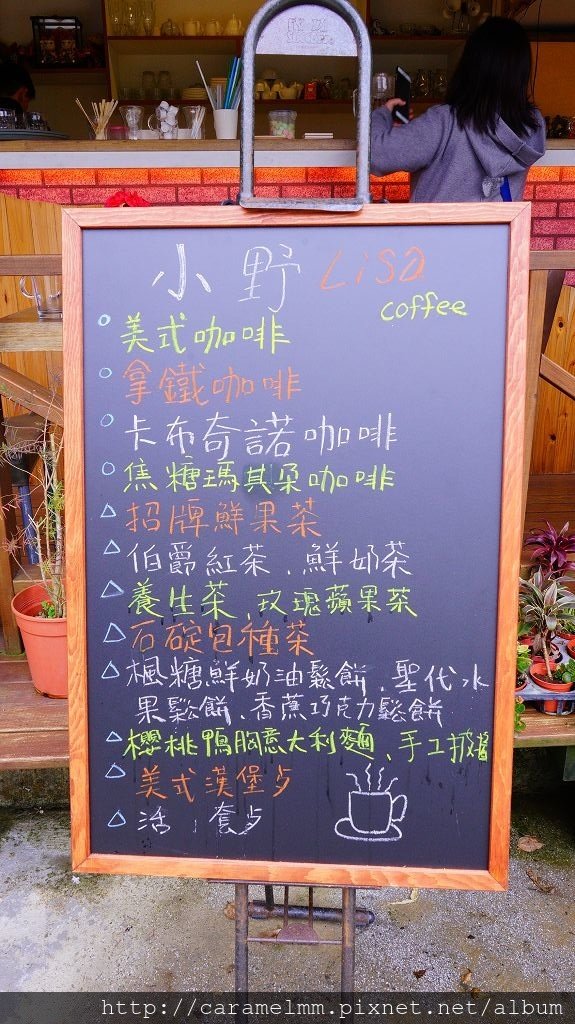 小野 Lisa
coffee
美式咖啡
拿鐵咖啡
卡布奇諾咖啡
焦糖瑪其朵咖啡
招牌鮮果茶
伯爵紅茶、鮮奶茶
養生茶、玫瑰蘋果茶
石碇包種茶
楓糖鮮奶油鬆餅、聖代水
果鬆餅、香蕉巧克力鬆餅
櫻桃鴨胸意大利麵、手工披
美式漢堡
活 套
http://caramelmm.pixnet.net/album